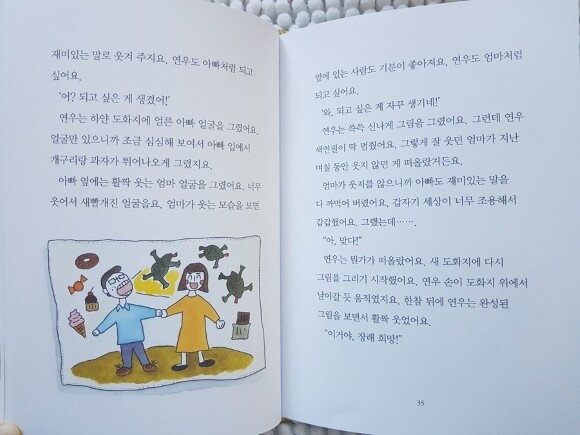 재미있는 말로 웃겨 주지요. 연우도 아빠처럼 되고
싶어요.
'어? 되고 싶은 게 생겼어!'
연우는 하얀 도화지에 얼른 아빠 얼굴을 그렸어요.
얼굴만 있으니까 조금 심심해 보여서 아빠 입에서
개구리랑 과자가 튀어나오게 그렸지요.
아빠 옆에는 활짝 웃는 엄마 얼굴을 그렸어요. 너무
웃어서 새빨개진 얼굴을요. 엄마가 웃는 모습을 보면
옆에 있는 사람도 기분이 좋아져요. 연우도 엄마처럼
되고 싶어요.
'와, 되고 싶은 게 자꾸 생기네!'
연우는 쓱쓱 신나게 그림을 그렸어요. 그런데 연우
색연필이 딱 멈췄어요. 그렇게 잘 웃던 엄마가 지난
며칠 동안 웃지 않던 게 떠올랐거든요.
엄마가 웃지를 않으니까 아빠도 재미있는 말을
다 까먹어 버렸어요. 갑자기 세상이 너무 조용해서
갑갑했어요. 그랬는데…….
"아, 맞다!"
연우는 뭔가가 떠올랐어요. 새 도화지에 다시
그림을 그리기 시작했어요. 연우 손이 도화지 위에서
날아갈 듯 움직였지요. 한참 뒤에 연우는 완성된
그림을 보면서 활짝 웃었어요.
"이거야, 장래 희망!"
35